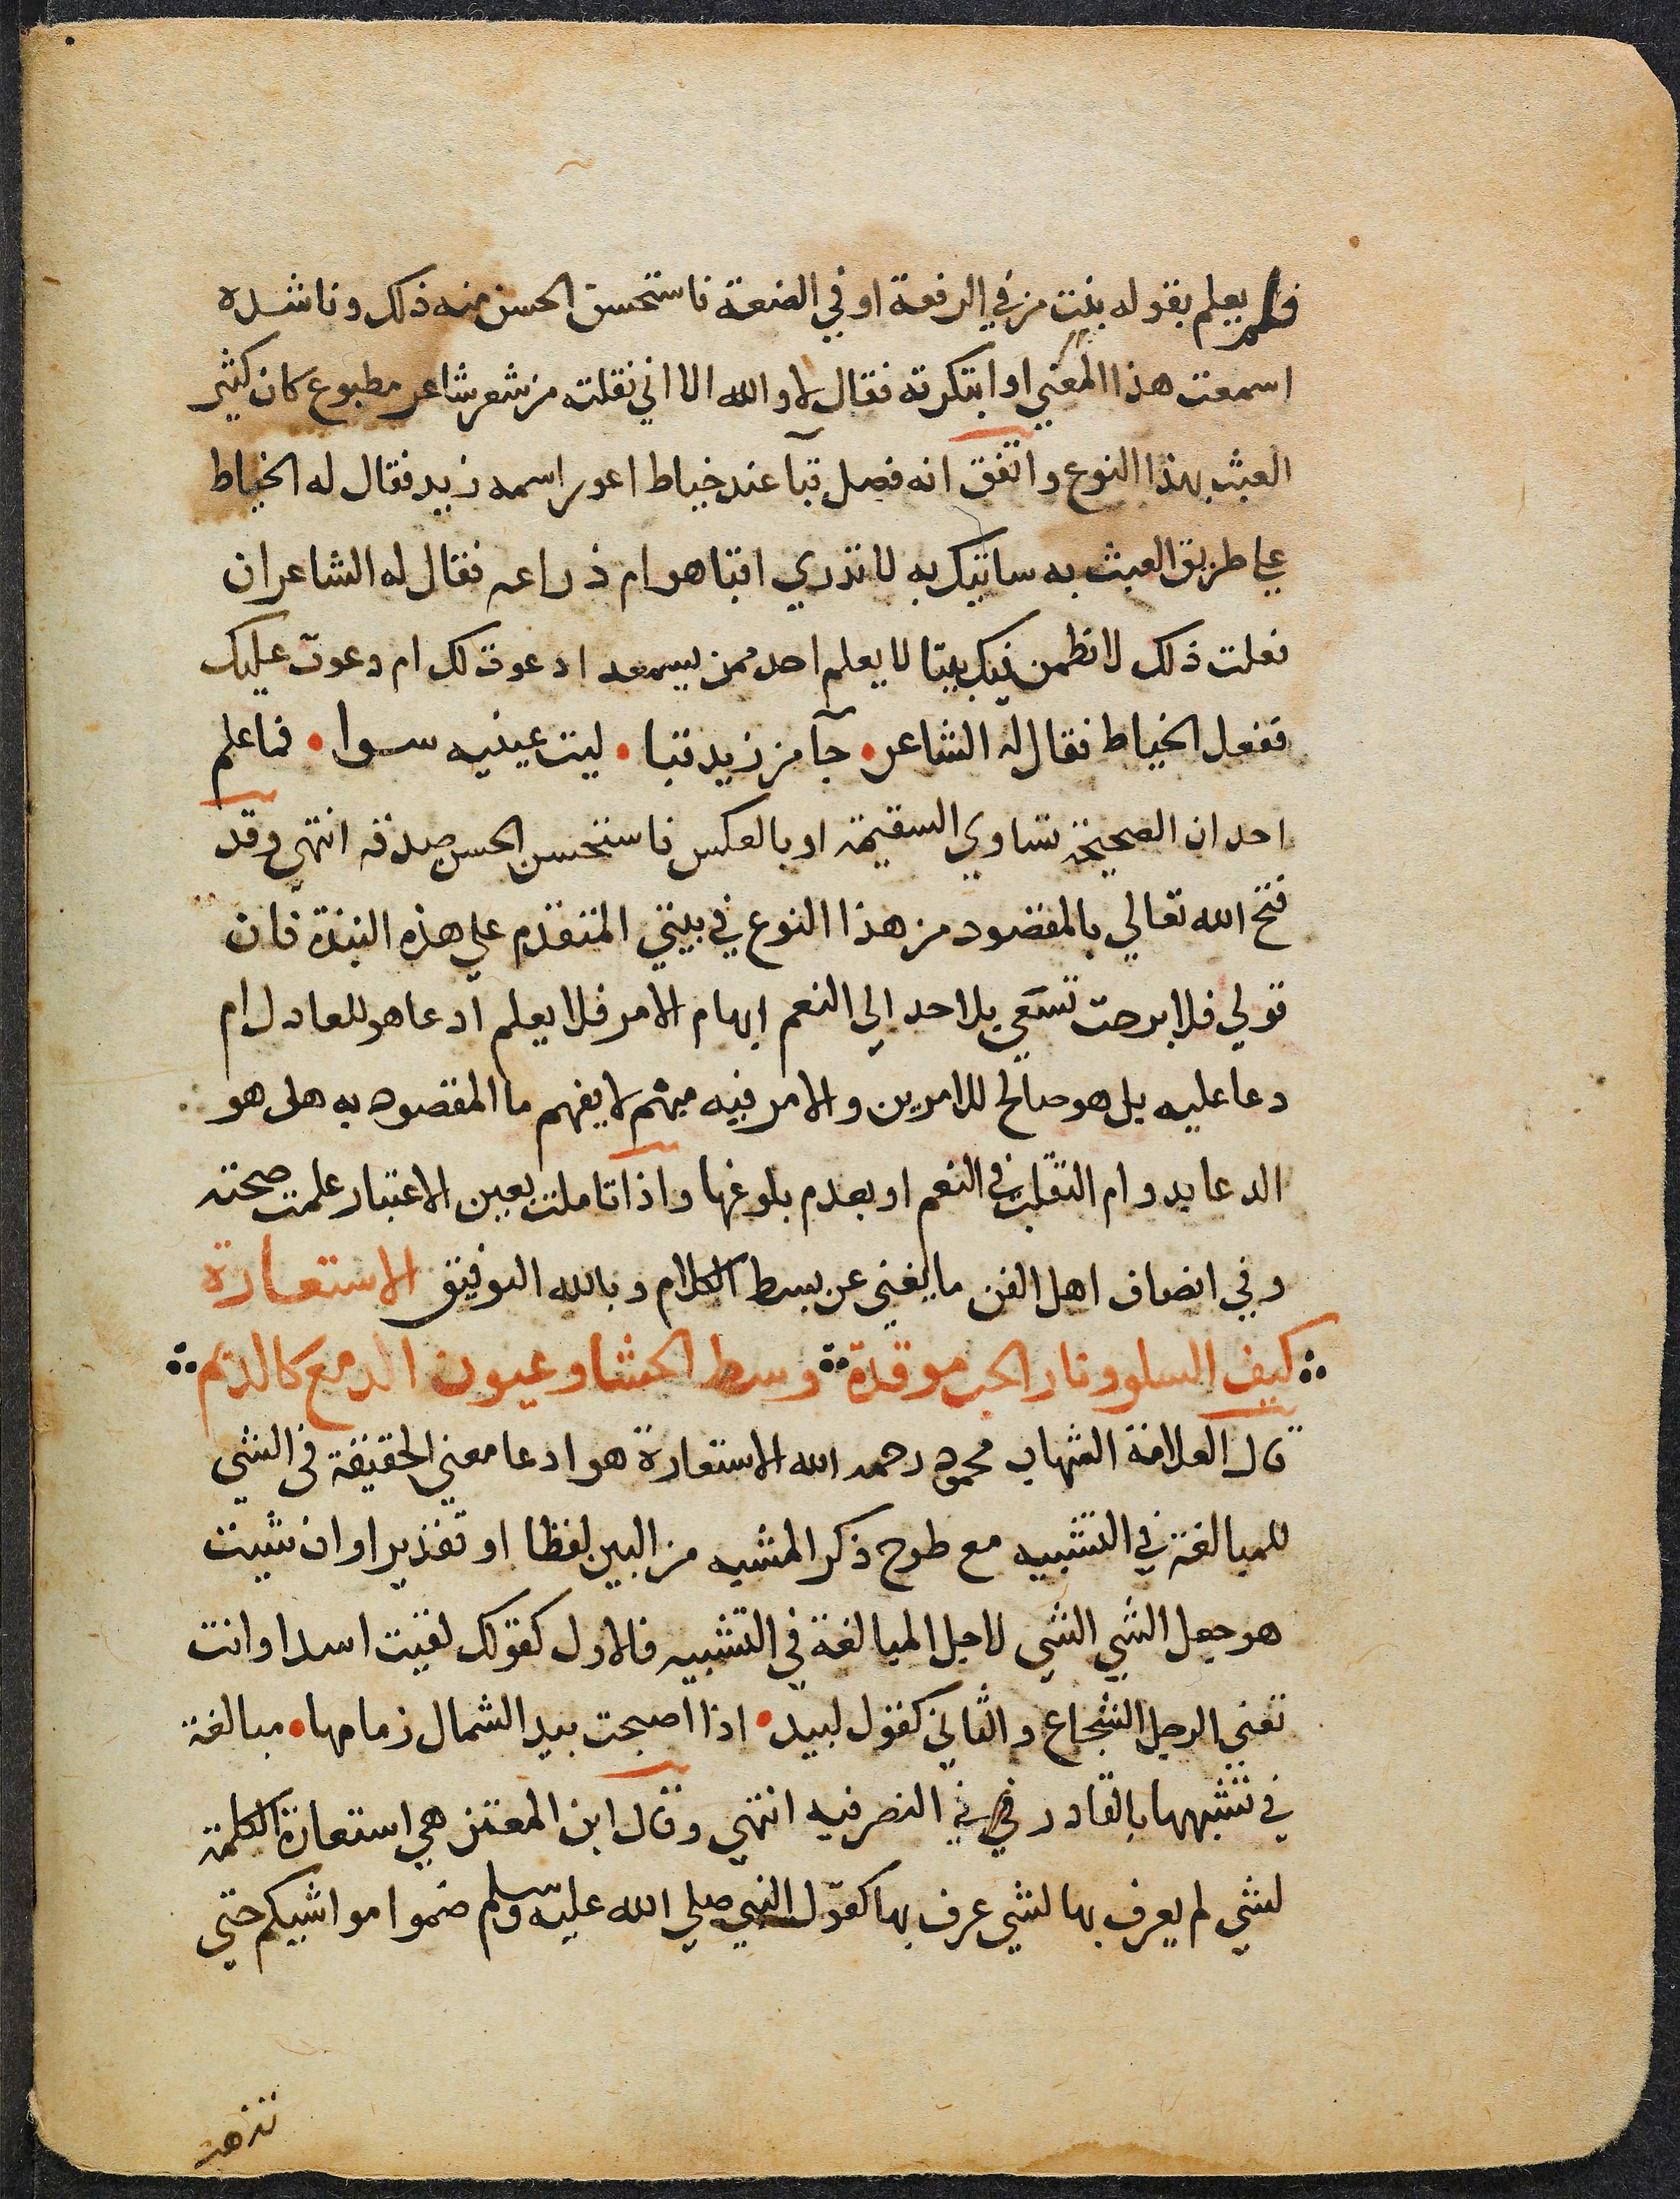 فلم يعلم بقوله بنت من في الرفعة او في الضعة فاستحسن الحسن منه ذلك وناشده
اسمعت هذا المعني او ابتكرته فقال لا والله الا اني نقلته من شعر شاعر مطبوع كان كثير
العبث بهذا النوع واتفق انه فصل قبآ عند خياط اعور اسمه زيد فقال له الخياط
علي طريق العبث به ساتيك به لا تدري اقبا هو ام ذراعه فقال له الشاعر ان
فعلت ذلك لانظمن فيك بيتا لا يعلم احد ممن يسمعه ادعوت لك ام دعوت عليك
ففعل الخياط فقال له الشاعر • جآ من زيد قبا • ليت عينيه سوا • فما علم
احد ان الصحيحة تساوي السقيمة او بالعكس فاستحسن الحسن صدقه انتهي وقد
فتح الله تعالي بالمقصود من هذا النوع في بيتي المتقدم علي هذه النبذة فان
قولي فلا برحت تسعي بلا حد الي النعم ابهام الامر فلا يعلم ادعا هو للعادل ام
دعا عليه بل هو صالح للامرين والامر فيه مبهم لا يفهم ما المقصود به هل هو
الدعا بدوام التقلب في النعم او بعدم بلوغها واذا تاملت بعين الاعتبار علمت صحته
وفي انصاف اهل الفن ما يغني عن بسط الكلام وبالله التوفيق الاستعارة
كيف السلو ونار الحب موقدة وسط الحشا وعيون الدمع كالديم
قال العلامة الشهاب محمود رحمه الله الاستعارة هو ادعا معني الحقيقة في الشي
للمبالغة في التشبيه مع طرح ذكر المشبه من البين لفظا او تقديرا وان شيت
هو جعل الشي الشي لاجل المبالغة في التشبيه فالاول كقولك لقيت اسدا وانت
تعني الرجل الشجاع والثاني كقول لبيد • اذا اصبحت بيد الشمال زمامها • مبالغة
في تشبهها بالقادر في التصرفيه انتهي وقال ابن المعتز هي استعارة الكلمة
لشي لم يعرف بها لشي عرف بها كقول النبي صلي الله عليه وسلم ضموا مواشيكم حتي
تذهب